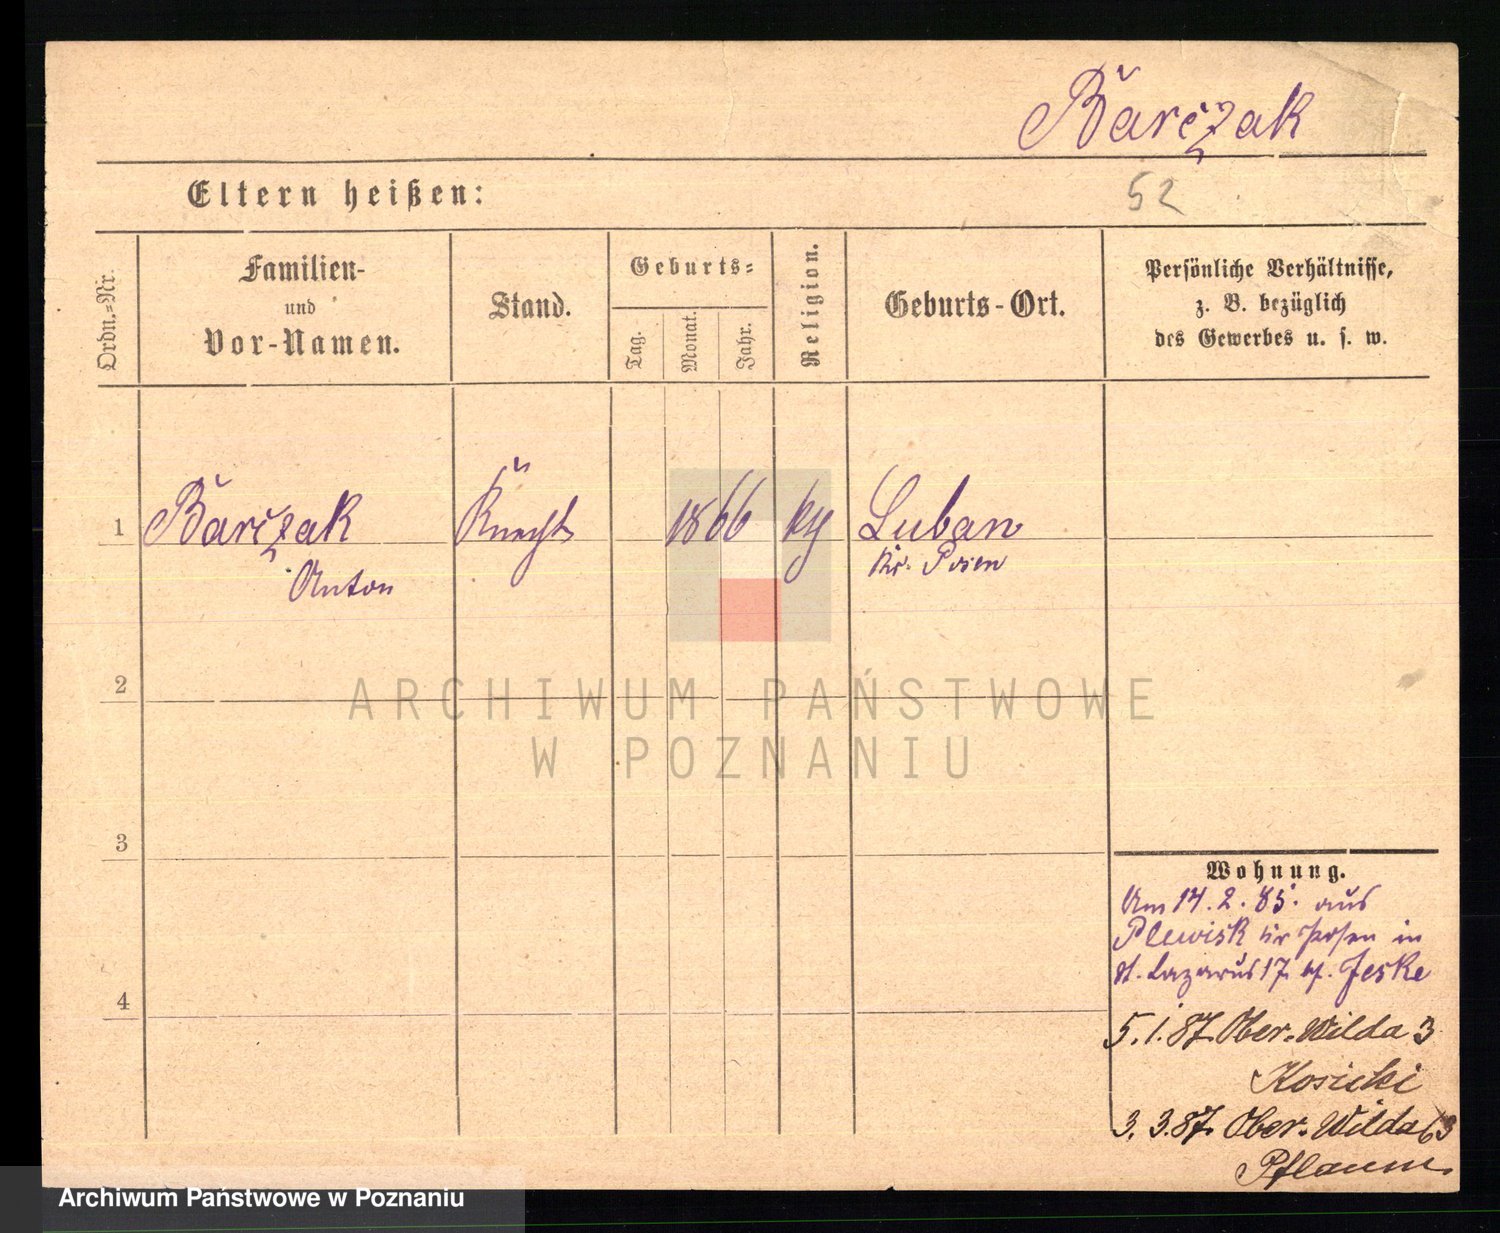 Barczak
Eltern heißen:
52
Ordn.-Nr.
Familien-
und
Vor-Namen.
Stand.
Geburts-
Tag.
Monat.
Jahr.
Religion.
Geburts-Ort.
Persönliche Verhältnisse,
z. B. bezüglich
des Gewerbes u. s. w.
1
Barczak
Anton
Knecht
1866
Luban
Kr. Posen
2
ARCHIWUM PAŃSTWOWE
W POZNANIU
3
4
Wohnung.
Am 14.2.85. aus
Plewisk Kr Posen in
St. Lazarus 17. Jeske
5.1.87. Ober-Wilda 3
Kosicki
3.3.87. Ober-Wilda 63
Pflaum.
Archiwum Państwowe w Poznaniu